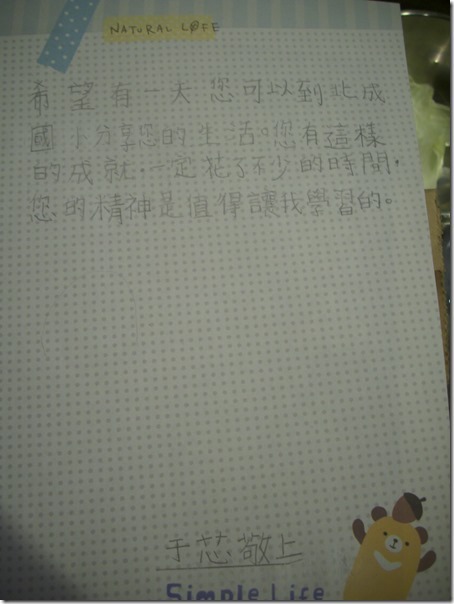 NATURAL LIFE
希望有一天您可以到北成
國小分享您的生活。您有這樣
的成就,一定花了不少的時間,
您的精神是值得讓我學習的。
于芯敬上
Simple Life